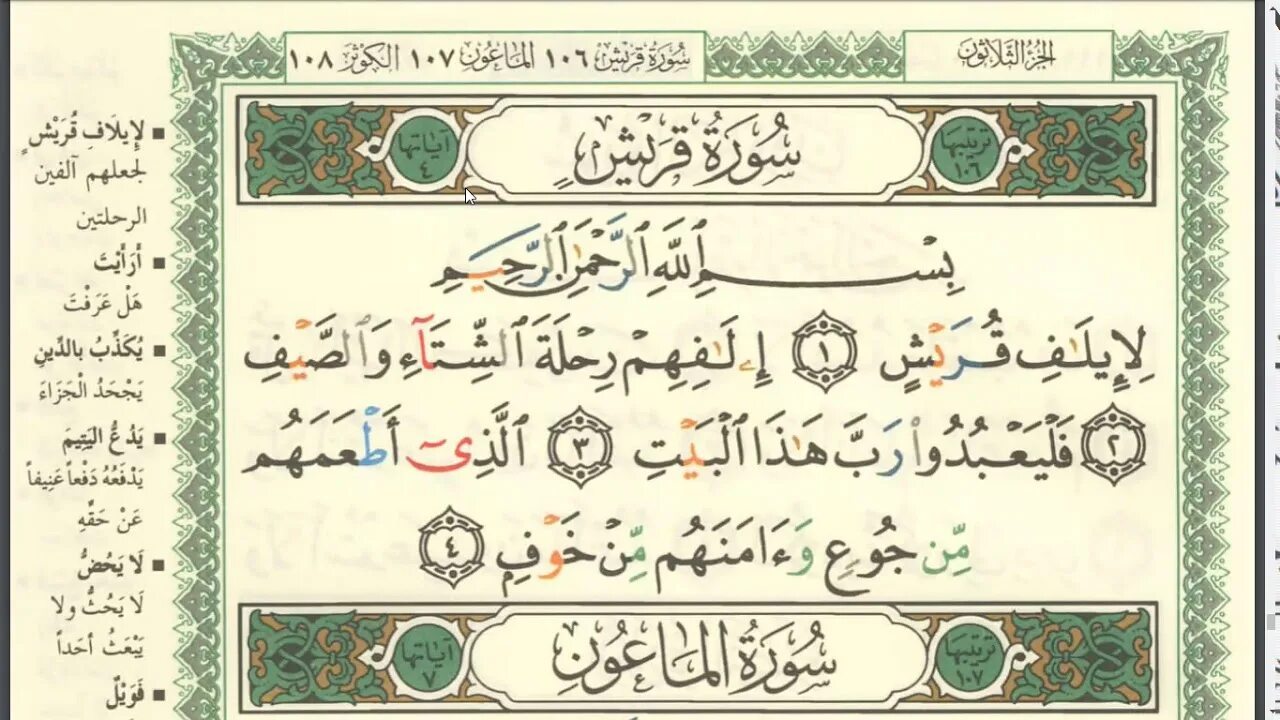 الجزء الثلاثون
سورة قريش ١٠٦ الماعون ١٠٧ الكوثر ١٠٨
ترتيبها ١٠٦
سُورَةُ قُرَيْشٍ
آياتها ٤
بِسْمِ ٱللَّهِ ٱلرَّحْمَٰنِ ٱلرَّحِيمِ
لِإِيلَٰفِ قُرَيْشٍ ١ إِۦلَٰفِهِمْ رِحْلَةَ ٱلشِّتَآءِ وَٱلصَّيْفِ
٢ فَلْيَعْبُدُوا۟ رَبَّ هَٰذَا ٱلْبَيْتِ ٣ ٱلَّذِىٓ أَطْعَمَهُم
مِّن جُوعٍ وَءَامَنَهُم مِّنْ خَوْفٍ ٤
ترتيبها ١٠٧
سُورَةُ المَاعُونِ
آياتها ٧
▪ لِإِيلَافِ قُرَيْشٍ
لجعلهم آلفين
الرحلتين
▪ أَرَأَيْتَ
هَلْ عَرَفْتَ
▪ يُكَذِّبُ بالدِّينِ
يَجْحَدُ الْجَزَاءَ
▪ يَدُعُّ اليَتِيمَ
يَدْفَعُهُ دَفْعاً عَنِيفاً
عَنْ حَقِّهِ
▪ لَا يَحُضُّ
لَا يَحُثُّ ولا
يَبْعَثُ أحَداً
▪ فَوَيْلٌ